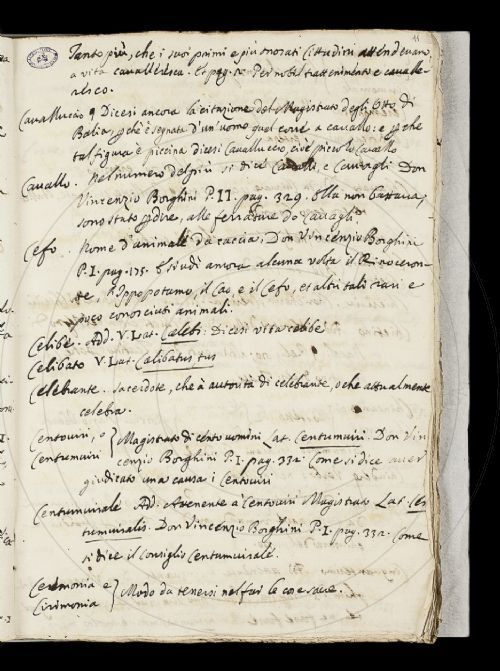 11
Tanto più, che i suoi primi e più onorati Cittadini attendevano
a vita cavalleresca. Et pag. Per nobil trattenimento e cavalle-
resco.
Cavalluccio Dicesi ancora la citazione del Magistrato degli Otto di
Balia, pchè è segnata d'un uomo qual corre a cavallo: e pche
tal figura è piccina dicesi Cavalluccio, cioè piccolo Cavallo
Cavallo. Nel numero del più si dice Cavalli, e Cavagli Don
Vincenzio Borghini P. II. pag. 329. Ella non bastava,
sono stato p dire, alle ferrature de Cavagli
Cefo. Nome d'animale da caccia, Don Vincenzio Borghini
P. I. pag. 175. E si udì ancora alcuna volta il Rinoceron-
te l'Ippopotamo, il Cao, e il Cefo, et altri tali rari e
poco conosciuti animali.
Celibe. Add. V. Lat. Caelebs: Dicesi vita celibe
Celibato V. Lat. Caelibatus, tus
Celebrante. Sacerdote, che à autorità di celebrante, o che attualmente
celebra.
Centoviri, o
Centumviri } Magistrato di cento uomini Lat. Centumviri. Don Vin
cenzio Borghini P. I. pag. 332. Come si dice aver
giudicato una causa i Centoviri
Centumvirale Add. Attenente a Centoviri Magistrato Lat. Cen
tumviralis. Don Vincenzio Borghini P. I. pag. 332. Come
si dice il Consiglio Centumvirale.
Ceremonia e
Cirimonia } Modo da tenersi nel far le cose sacre.